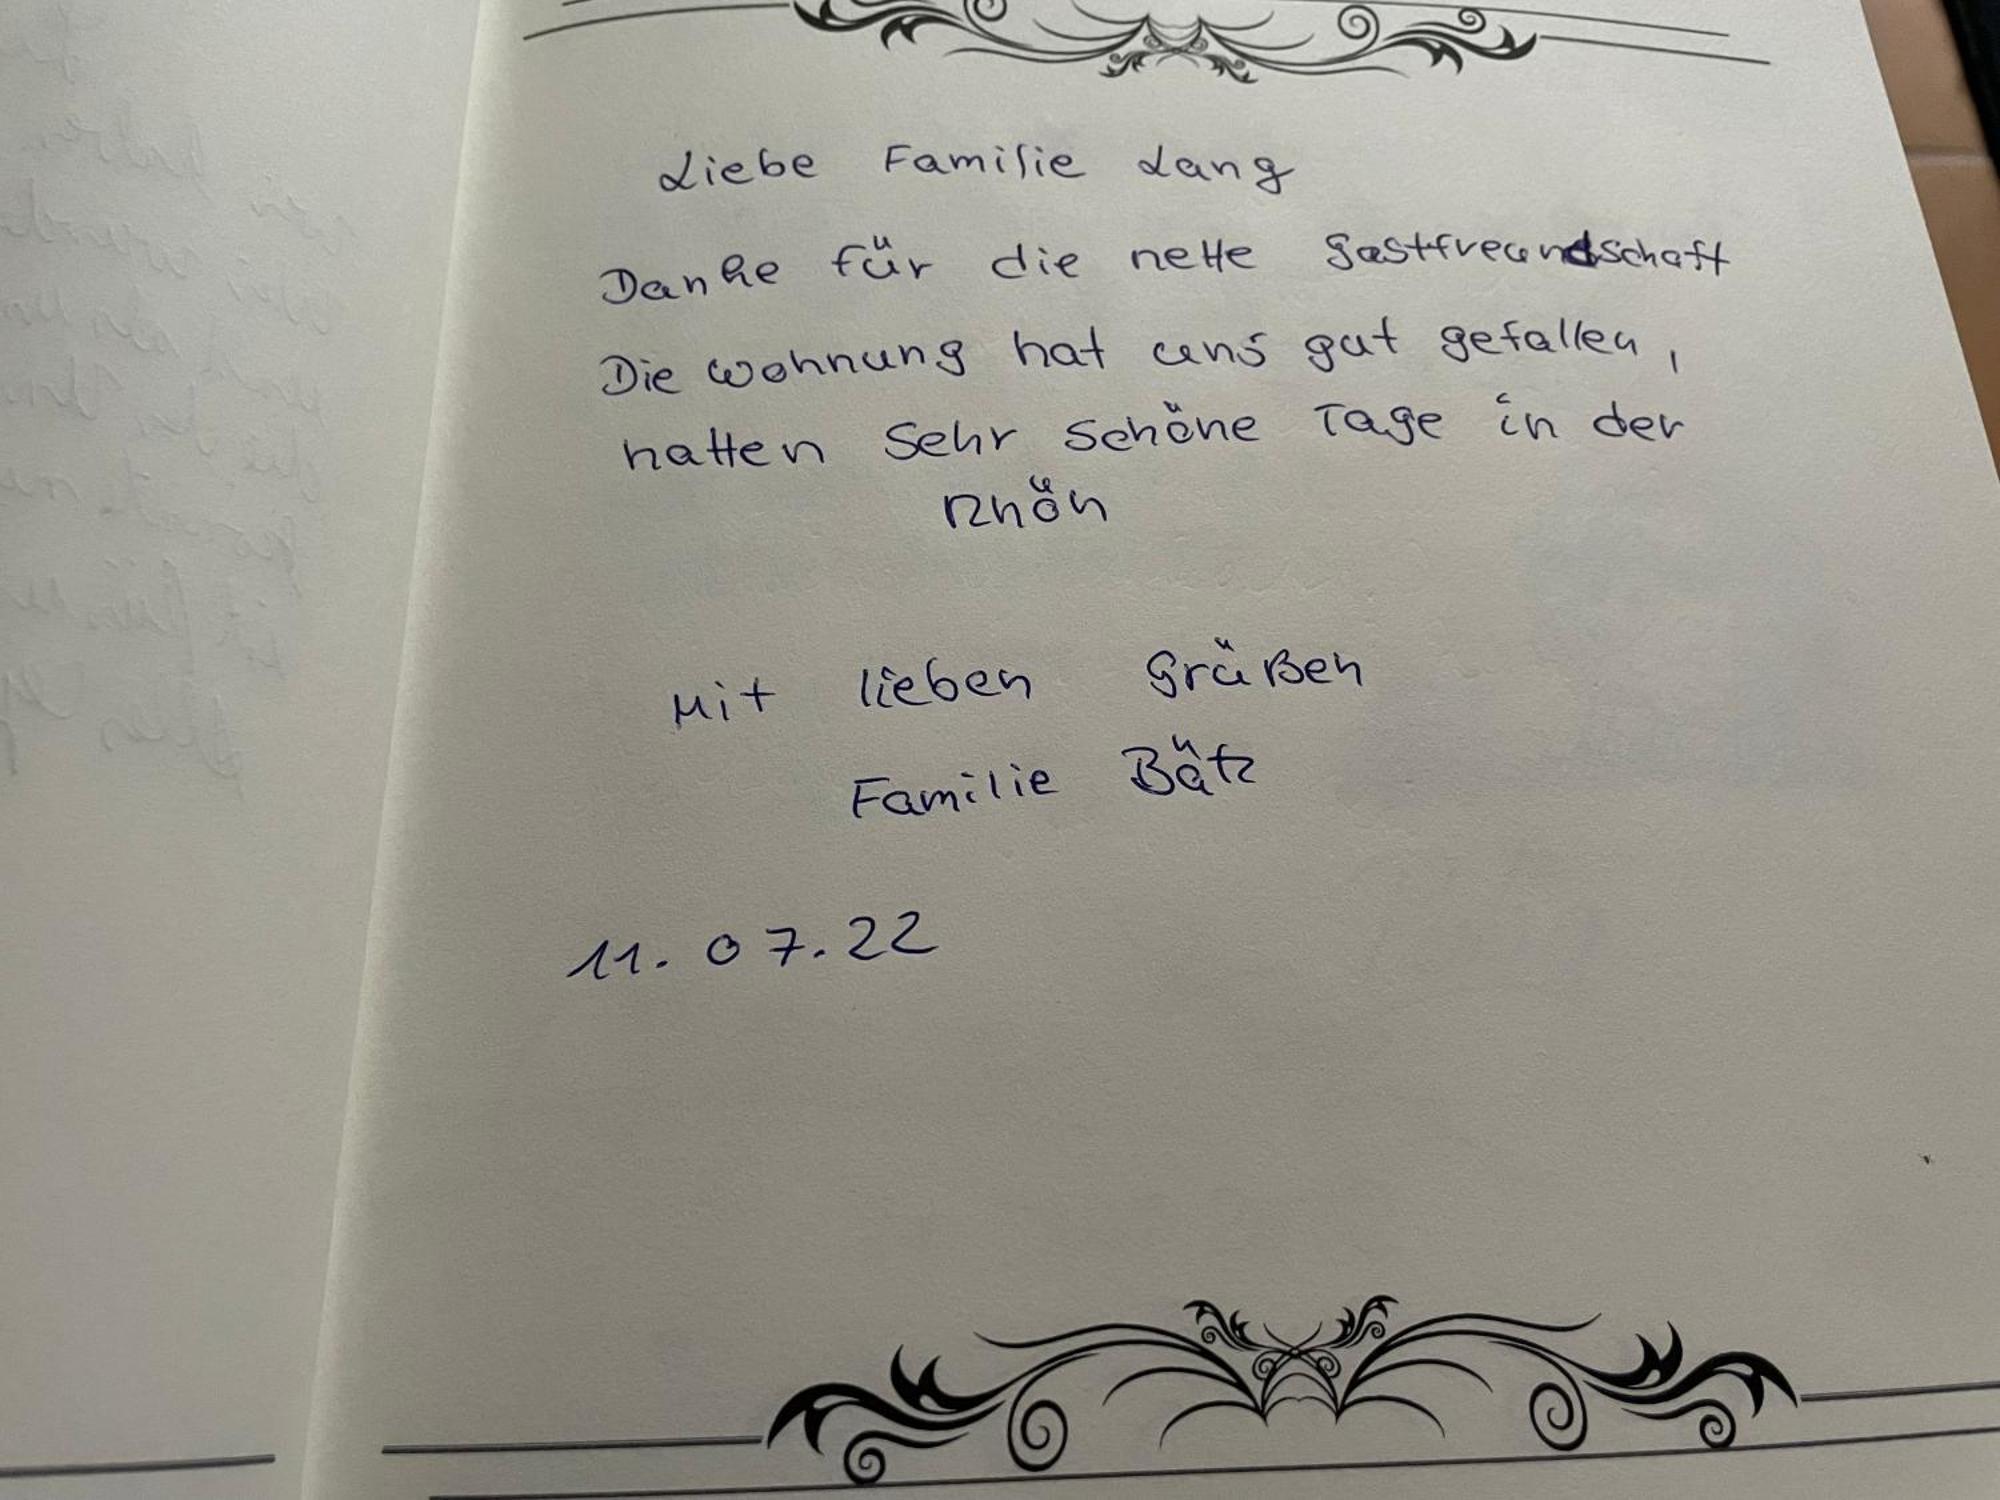 Liebe Familie Lang
Danke für die nette Gastfreundschaft
Die Wohnung hat uns gut gefallen,
hatten sehr schöne Tage in der
Rhön
Mit lieben Grüßen
Familie Bätz
11.07.22